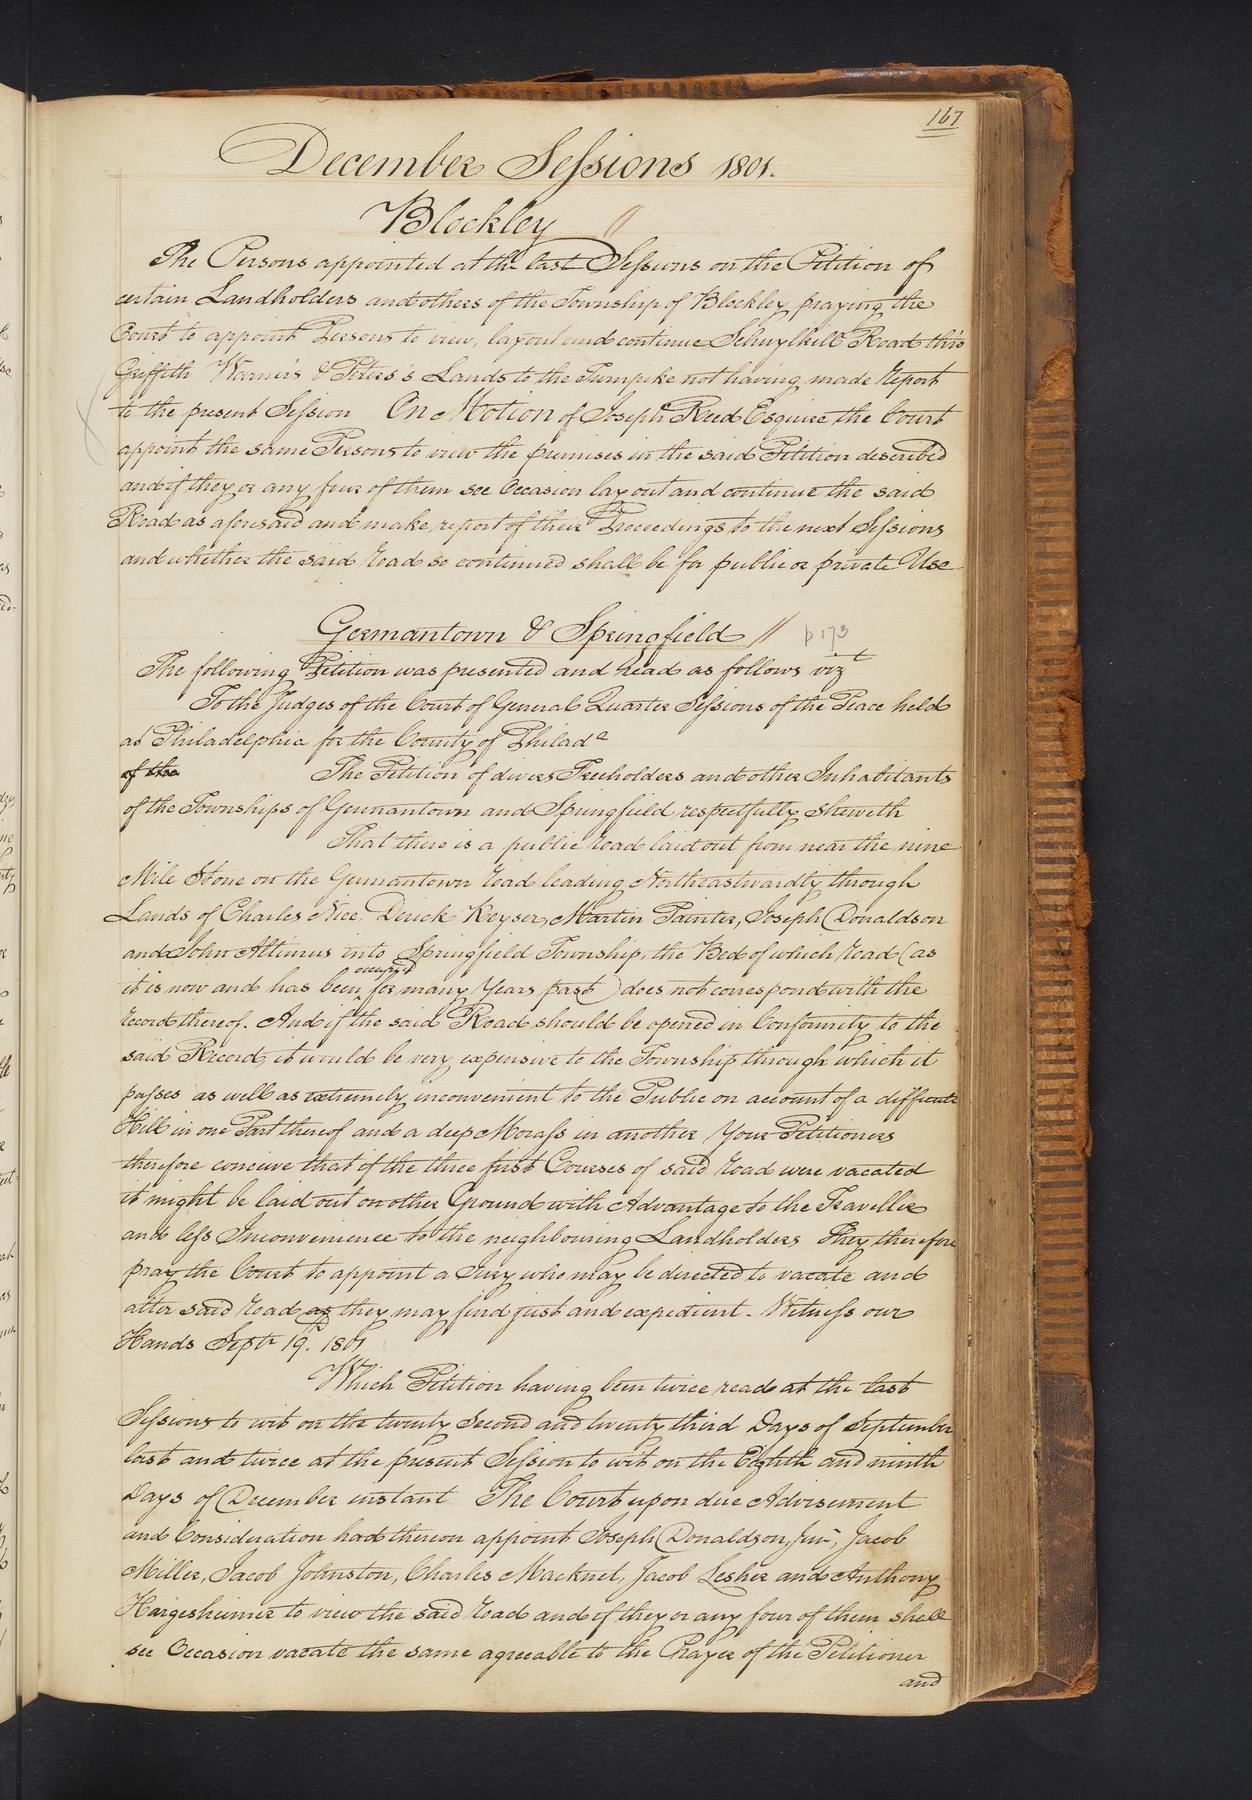 167
December Sessions 1801.
Blockley
The Persons appointed at the last Sessions on the Petition of
certain Landholders and others of the Township of Blockley praying the
Court to appoint Persons to view, lay out and continue Schuylkill Road thro
Griffith Warner's & Peters's Lands to the Turnpike not having made Report
to the present Session On Motion of Joseph Reed Esquire the Court
appoint the same Persons to view the premises in the said Petition described
and if they or any four of them see Occasion lay out and continue the said
Road as aforesaid and make report of their Proceedings to the next Sessions
and whether the said road so continued shall be for public or private Use
Germantown & Springfield // p 173
The following Petition was presented and read as follows vizt
To the Judges of the Court of General Quarter Sessions of the Peace held
at Philadelphia for the County of Philada
of the The Petition of divers Freeholders and other Inhabitants
of the Townships of Germantown and Springfield respectfully sheweth
That there is a public road laid out from near the nine
Mile Stone on the Germantown road leading Northeastwardly through
Lands of Charles Nice, Derick Keyser, Martin Painter, Joseph Donaldson
and John Altimus into Springfield Township, the Bed of which road (as
it is now and has been occupied for many Years past) does not correspond with the
record thereof. And if the said Road should be opened in Conformity to the
said Record, it would be very expensive to the Township through which it
passes as well as extremely inconvenient to the Public on account of a difficult
Hill in one Part thereof and a deep Morass in another Your Petitioners
therefore conceive that if the three first Courses of said road were vacated
it might be laid out on other Ground with Advantage to the Traveller
and less Inconvenience to the neighbouring Landholders They therefore
pray the Court to appoint a Jury who may be directed to vacate and
alter said road as they may find just and expedient. Witness our
Hands Septr 19th. 1801
Which Petition having been twice read at the last
Sessions to wit on the twenty Second and twenty third Days of September
last and twice at the present Session to wit on the Eighth and ninth
Days of December instant The Court upon due Advisement
and Consideration had thereon appoint Joseph Donaldson, Junr, Jacob
Miller, Jacob Johnston, Charles Macknet, Jacob Lesher and Anthony
Hargesheimer to view the said road and if they or any four of them shall
see Occasion vacate the same agreeable to the Prayer of the Petitioner
and